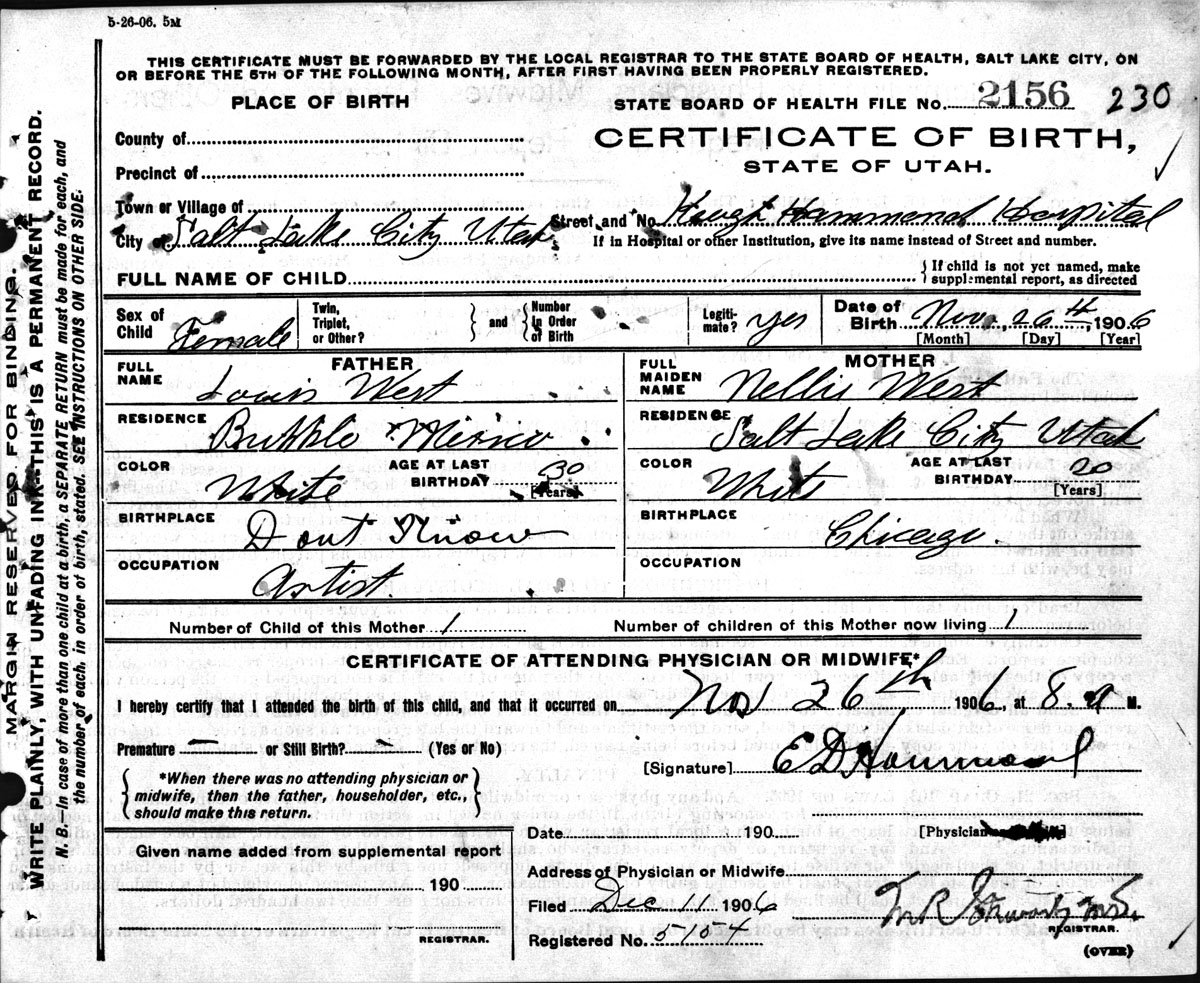 5-26-06. 5M
THIS CERTIFICATE MUST BE FORWARDED BY THE LOCAL REGISTRAR TO THE STATE BOARD OF HEALTH, SALT LAKE CITY, ON
OR BEFORE THE 5TH OF THE FOLLOWING MONTH, AFTER FIRST HAVING BEEN PROPERLY REGISTERED.
PLACE OF BIRTH
STATE BOARD OF HEALTH FILE No. 2156 230
County of
CERTIFICATE OF BIRTH,
Precinct of
STATE OF UTAH.
Town or Village of
City of Salt Lake City Utah Street and No. Keogh Hammond Hospital
If in Hospital or other Institution, give its name instead of Street and number.
FULL NAME OF CHILD
{If child is not yet named, make
supplemental report, as directed
Sex of Child Female
Twin, Triplet, or Other? } and { Number in Order of Birth
Legiti-mate? yes
Date of Birth Nov., 26th, 1906
[Month] [Day] [Year]
FATHER
MOTHER
FULL NAME Louis West
FULL MAIDEN NAME Nellie West
RESIDENCE
RESIDENCE Salt Lake City Utah
COLOR White AGE AT LAST BIRTHDAY 30 [Years]
COLOR White AGE AT LAST BIRTHDAY 20 [Years]
BIRTHPLACE Dont Know
BIRTHPLACE Chicago.
OCCUPATION Artist.
OCCUPATION
Number of Child of this Mother 1 Number of children of this Mother now living 1
CERTIFICATE OF ATTENDING PHYSICIAN OR MIDWIFE*
I hereby certify that I attended the birth of this child, and that it occurred on Nov 26th, 1906, at 8. a M.
Premature — or Still Birth? - (Yes or No)
[Signature] E D Hammond
{ *When there was no attending physician or
midwife, then the father, householder, etc.,
should make this return. }
Date 190 [Physician
Given name added from supplemental report
190
Address of Physician or Midwife
Filed Dec 11 1906
REGISTRAR.
REGISTRAR.
Registered No. 5154
(OVER)
MARGIN RESERVED FOR BINDING.
WRITE PLAINLY, WITH UNFADING INK—THIS IS A PERMANENT RECORD.
N. B.—In case of more than one child at a birth, a SEPARATE RETURN must be made for each, and
the number of each, in order of birth, stated. SEE INSTRUCTIONS ON OTHER SIDE.